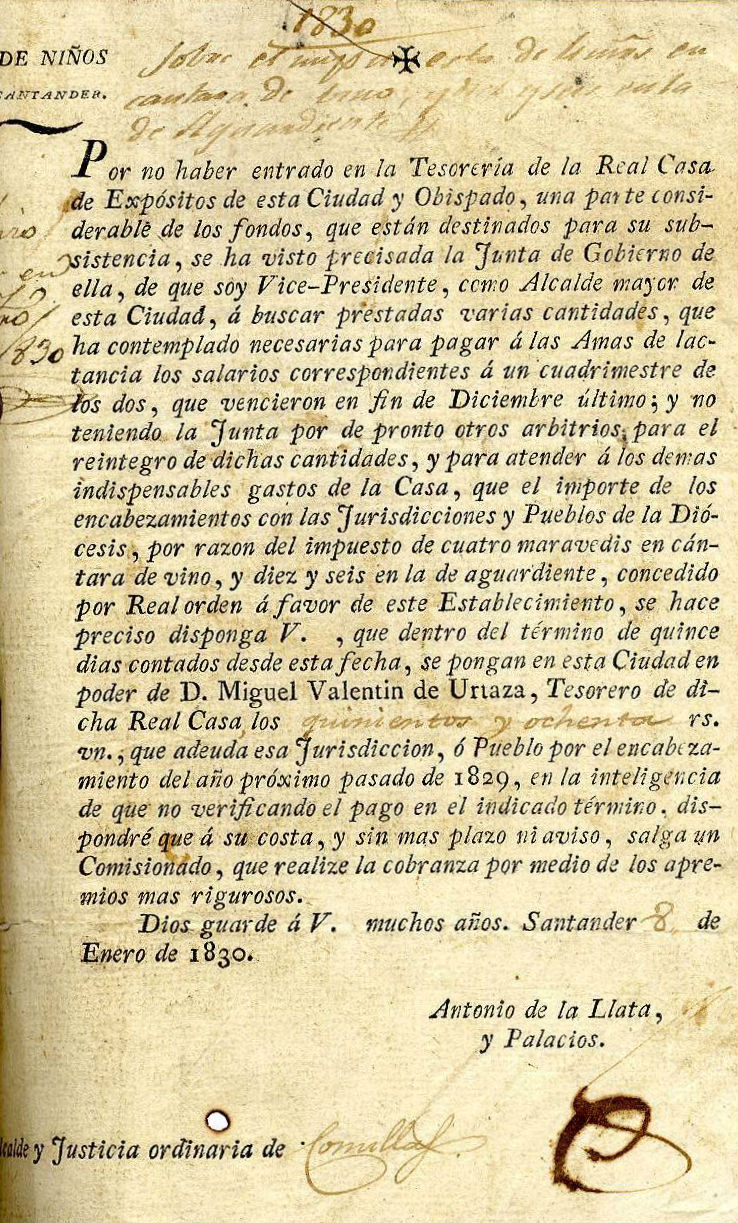 1830
DE NIÑOS
SANTANDER.
Sobre el de 4 mrs en
cantara de vino, y diez y seis en la
de Aguardiente
Por no haber entrado en la Tesorería de la Real Casa
de Expósitos de esta Ciudad y Obispado, una parte consi-
derable de los fondos, que están destinados para su sub-
sistencia, se ha visto precisada la Junta de Gobierno de
ella, de que soy Vice-Presidente, como Alcalde mayor de
esta Ciudad, á buscar prestadas varias cantidades, que
ha contemplado necesarias para pagar á las Amas de lac-
tancia los salarios correspondientes á un cuadrimestre de
los dos, que vencieron en fin de Diciembre último; y no
teniendo la Junta por de pronto otros arbitrios, para el
reintegro de dichas cantidades, y para atender á los demas
indispensables gastos de la Casa, que el importe de los
encabezamientos con las Jurisdicciones y Pueblos de la Dió-
cesis, por razon del impuesto de cuatro maravedis en cán-
tara de vino, y diez y seis en la de aguardiente, concedido
por Real orden á favor de este Establecimiento, se hace
preciso disponga V. , que dentro del término de quince
dias contados desde esta fecha, se pongan en esta Ciudad en
poder de D. Miguel Valentin de Urtaza, Tesorero de di-
cha Real Casa los quinientos y ochenta rs.
vn., que adeuda esa Jurisdiccion, ó Pueblo por el encabeza-
miento del año próximo pasado de 1829, en la inteligencia
de que no verificando el pago en el indicado término, dis-
pondré que á su costa, y sin mas plazo ni aviso, salga un
Comisionado, que realize la cobranza por medio de los apre-
mios mas rigurosos.
Dios guarde á V. muchos años. Santander 8 de
Enero de 1830.
Antonio de la Llata,
y Palacios.
lcalde y Justicia ordinaria de Comillas
en
1830